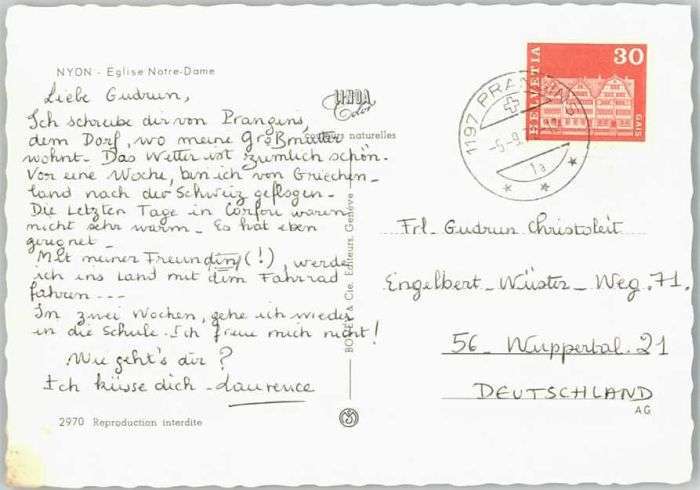 NYON - Eglise Notre-Dame
Liebe Gudrun,
Ich schreibe dir von Prangins,
dem Dorf, wo meine Großmutter
wohnt. Das Wetter ist ziemlich schön.
Vor eine Woche, bin ich von Griechen-
land nach der Schweiz geflogen.
Die Letzten Tage in Corfou waren
nicht sehr warm. Es hat eben
geregnet.
Mit meiner Freundin (!), werde
ich ins Land mit dem Fahrrad
fahren...
In zwei Wochen, gehe ich wieder
in die Schule. Ich freue mich nicht!
Wie geht's dir?
Ich küsse dich - Laurence
2970 Reproduction interdite
Color
Couleurs naturelles
Editeurs. Genève
HELVETIA
30
GAIS
1197 PRANGINS
-5-9
1a
Frl. Gudrun Christoleit
Engelbert-Wüster-Weg. 71.
56-Wuppertal. 21
DEUTSCHLAND
AG